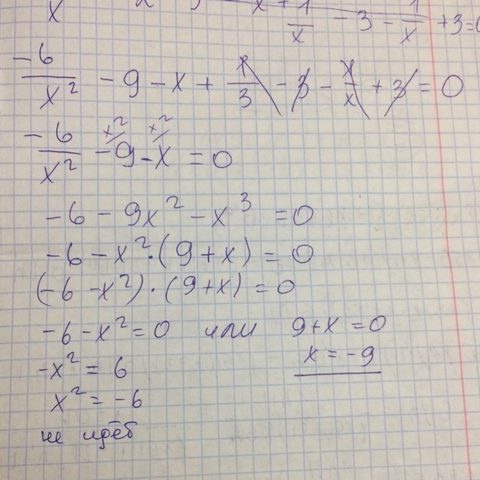 x + 1/x - 3 - 1/x + 3 = 0
-6/x² - 9 - x + 1/3 - 3 - x/x + 3 = 0
-6/x² - 9 - x = 0
x² x²
-6 - 9x² - x³ = 0
-6 - x²·(9+x) = 0
(-6 - x²)·(9+x) = 0
-6 - x² = 0 или 9+x = 0
-x² = 6 x = -9
x² = -6
не идёт